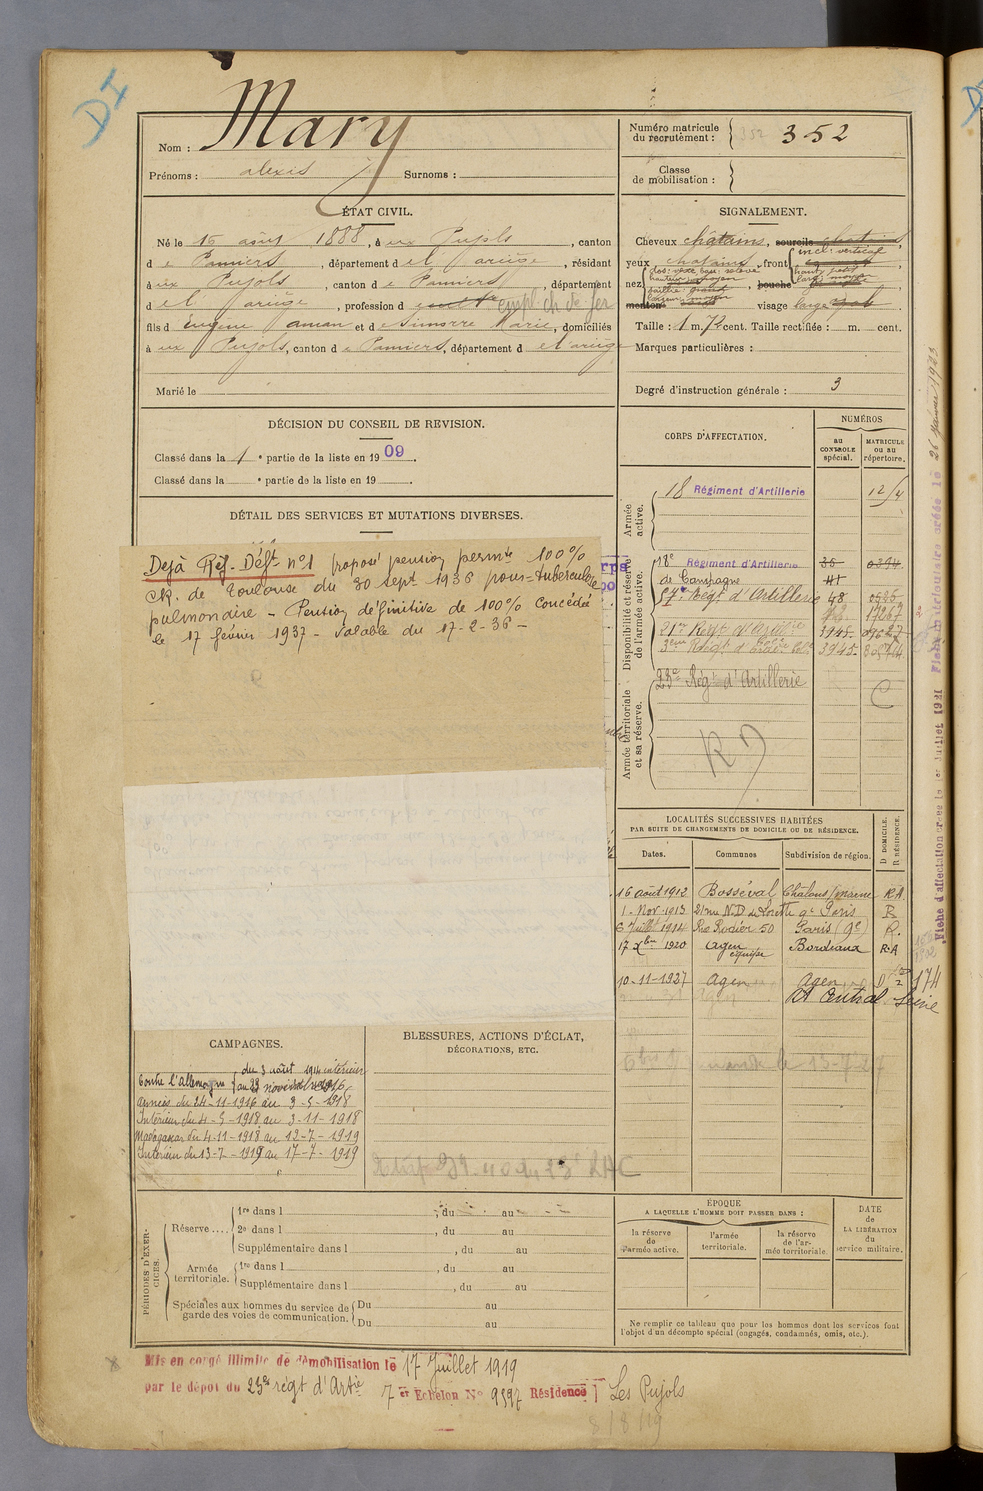 DI
Nom : Mary
Prénoms : alexis Surnoms :
Numéro matricule du recrutement : 352
Classe de mobilisation :
ÉTAT CIVIL.
Né le 15 août 1888, à ux Pujols, canton
d e Pamiers, département d e l' ariège, résidant
à ux Pujols, canton d e Pamiers, département
d e l' ariège, profession d empl. ch. de fer
fils d' Eugène aman et d e Simorre Marie, domiciliés
à ux Pujols, canton d e Pamiers, département d e l'ariège
Marié le
SIGNALEMENT.
Cheveux châtains, sourcils châtains
yeux châtains, front incl: vertical haut: petit larg: moyen
nez dos: base: relevé hauteur: moyen saillie: largeur: moyen, bouche
menton visage large
Taille : 1 m. 72 cent. Taille rectifiée : m. cent.
Marques particulières :
Degré d'instruction générale : 3
DÉCISION DU CONSEIL DE REVISION.
Classé dans la 1e partie de la liste en 1909.
Classé dans la e partie de la liste en 19 .
DÉTAIL DES SERVICES ET MUTATIONS DIVERSES.
Dejà Rég. Déft n°1 proposé pension permte 100%
CR. de Toulouse du 30 sept 1936 pour tuberculose
pulmonaire - Pension définitive de 100% concédée
le 17 février 1937 - valable du 17-2-36 -
CORPS D'AFFECTATION.
NUMÉROS
au CONTROLE spécial.
MATRICULE ou au répertoire.
Armée active.
18 Régiment d'Artillerie
Disponibilité et réserve de l'armée active.
18e Régiment d'Artillerie 36
de Campagne
57e Régt d'Artillerie 48
21er Regt d'Artillerie 3945
3eme Régt d' 3945
Armée territoriale et sa réserve.
23e Régt d'Artillerie C
LOCALITÉS SUCCESSIVES HABITÉES
PAR SUITE DE CHANGEMENTS DE DOMICILE OU DE RÉSIDENCE.
D DOMICILE. R RÉSIDENCE.
Dates. Communes Subdivision de région.
16 août 1912 Bosséval Châlons/Marne RA.
1 - Nov. 1913 21 rue N.D. de Lorette 9e Paris R
6 Juillet 1914 Rue Rodier 50 Paris (9e) R.
17 Xbre 1920 Agen équipe Bordeaux R.A
10-11-1927 Agen Agen D
Rt Central Seine
174
CAMPAGNES.
Contre l'allemagne du 3 août 1914 intérieur
au 23 novembre 1916
Armées du 24-11-1916 au 3-5-1918
Intérieur du 4-5-1918 au 3-11-1918
Madagascar du 4-11-1918 au 12-7-1919
Intérieur du 13-7-1919 au 17-7-1919
BLESSURES, ACTIONS D'ÉCLAT,
DÉCORATIONS, ETC.
PÉRIODES D'EXERCICES.
Réserve....
1re dans l , du au
2e dans l , du au
Supplémentaire dans l , du au
Armée territoriale.
1re dans l , du au
Supplémentaire dans l , du au
Spéciales aux hommes du service de garde des voies de communication.
Du au
Du au
ÉPOQUE
A LAQUELLE L'HOMME DOIT PASSER DANS :
la réserve de l'armée active.
l'armée territoriale.
la réserve de l'armée territoriale.
DATE de LA LIBÉRATION du service militaire.
Ne remplir ce tableau que pour les hommes dont les services font
l'objet d'un décompte spécial (engagés, condamnés, omis, etc.).
Mis en congé illimité de démobilisation le 17 Juillet 1919
par le dépot du 23e régt d'Artie 7er Echelon N° 9397 Résidence Les Pujols
8/8/19
Fiche d'affectation créée le 1er Juillet 1921